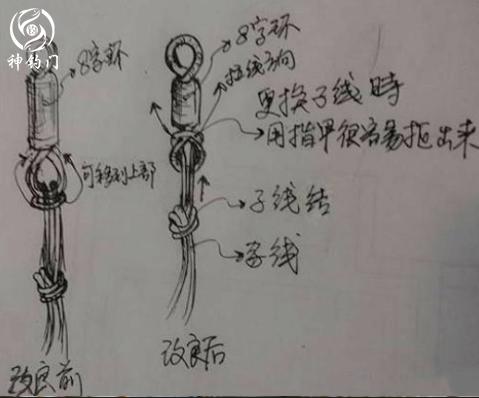 神钓门
8字环
可移到上部
改良前
8字环
拉线方向
更换子线時
用指甲很容易抠出来
子线结
子线
改良后